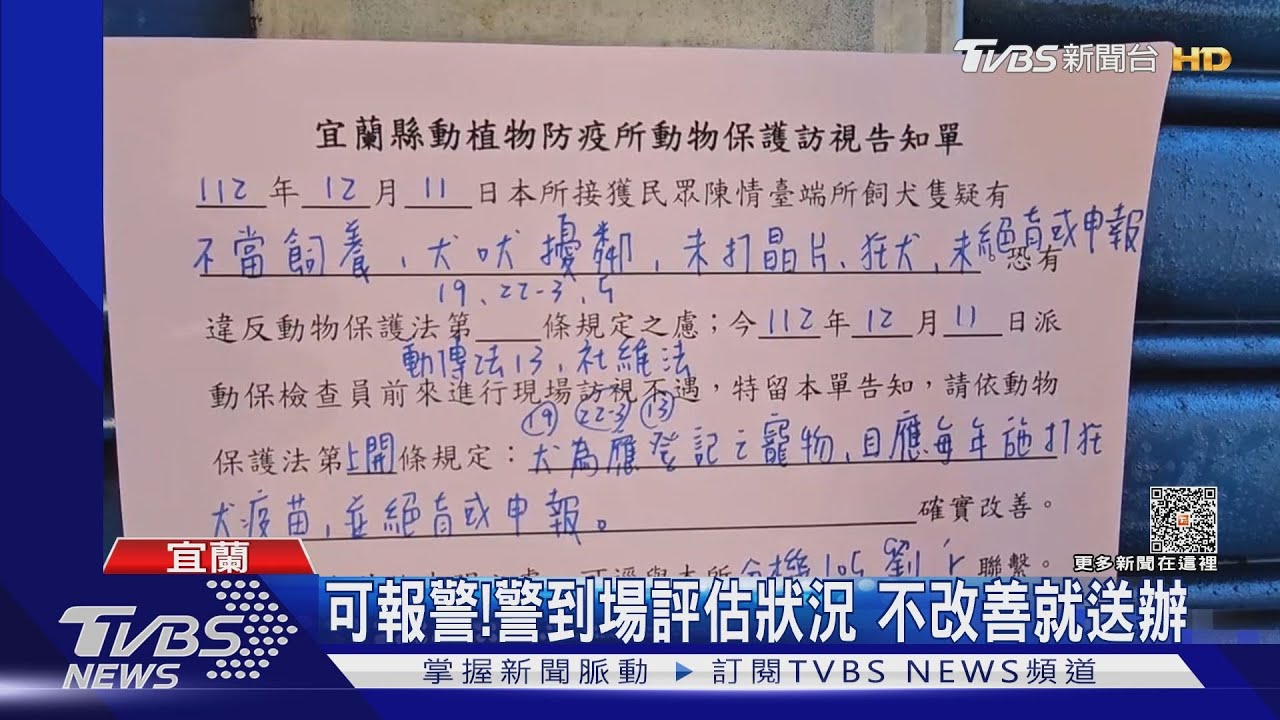 TVBS新聞台 HD
宜蘭縣動植物防疫所動物保護訪視告知單
112年12月11日本所接獲民眾陳情臺端所飼犬隻疑有
不當飼養,犬吠擾鄰,未打晶片、狂犬,未絕育或申報。恐有
19、22-3、5
違反動物保護法第 條規定之慮;今112年12月11日派
動傳法13,社維法
動保檢查員前來進行現場訪視不遇,特留本單告知,請依動物
(19) (22-3) (13)
保護法第上開條規定:犬為應登記之寵物,且應每年施打狂
犬疫苗,應絕育或申報。確實改善。
可逕與本所分機105劉 聯繫。
更多新聞在這裡
宜蘭
可報警!警到場評估狀況 不改善就送辦
TVBS NEWS
掌握新聞脈動 ▶ 訂閱TVBS NEWS頻道